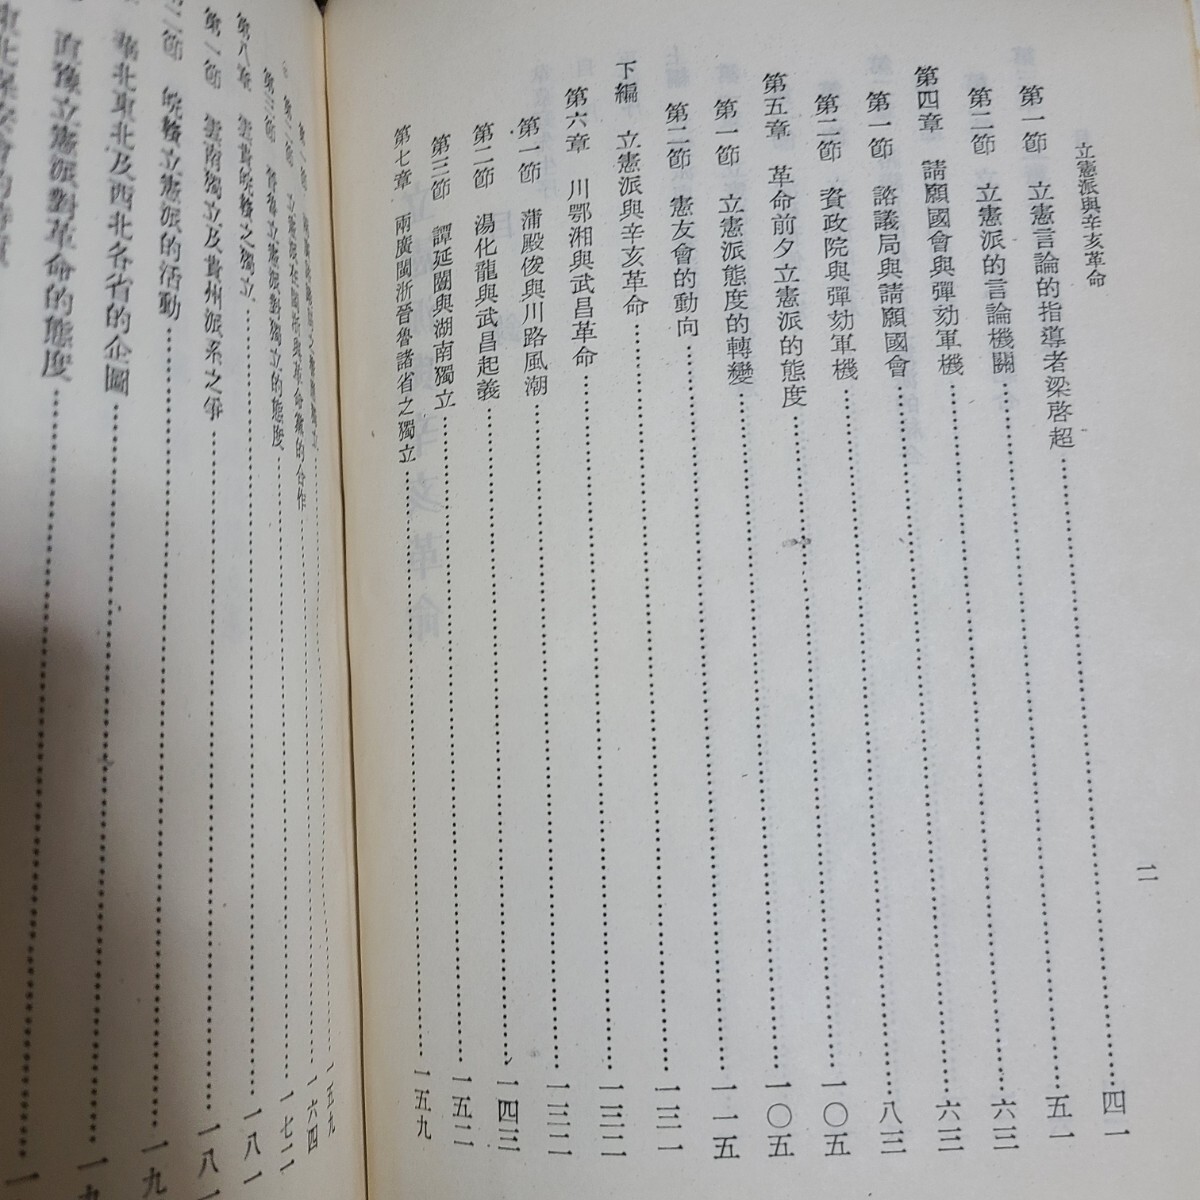 立憲派與辛亥革命
二
第一節 立憲言論的指導者梁啓超……四一
第二節 立憲派的言論機關……五一
第四章 請願國會與彈劾軍機……六三
第一節 諮議局與請願國會……六三
第二節 資政院與彈劾軍機……八三
第五章 革命前夕立憲派的態度……一〇五
第一節 立憲派態度的轉變……一〇五
第二節 憲友會的動向……一一五
下編 立憲派與辛亥革命……一三一
第六章 川鄂湘與武昌革命……一三二
第一節 蒲殿俊與川路風潮……一三二
第二節 湯化龍與武昌起義……一四三
第三節 譚延闓與湖南獨立……一五二
第七章 兩廣閩浙晉魯諸省之獨立……一五九
第一節……一五九
第二節 立憲派在閩浙與革命黨的合作……一六四
第三節 晉魯立憲派對獨立的態度……一七二
第八章 雲貴皖贛之獨立……一八一
第一節 雲南獨立及貴州派系之爭……一八一
第二節 皖贛立憲派的活動……一九
華北東北及西北各省的企圖……一九
直豫立憲派對革命的態度……一